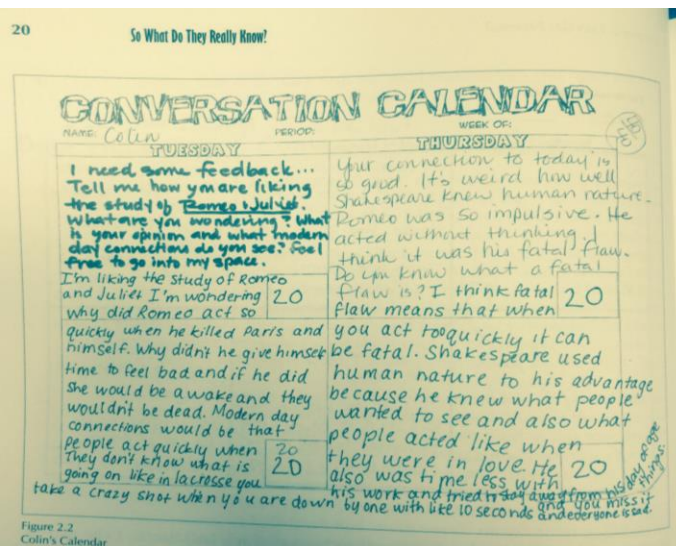 20
So What Do They Really Know?
CONVERSATION CALENDAR
NAME: Colin
PERIOD:
WEEK OF:
40
40
TUESDAY
I need some feedback...
Tell me how you are liking
the study of Romeo & Juliet.
What are you wondering? What
is your opinion and what modern
day connections do you see? Feel
free to go into my space.
I'm liking the study of Romeo
and Juliet I'm wondering
why did Romeo act so
20
quickly when he killed Paris and
himself. Why didn't he give himself
time to feel bad and if he did
she would be awake and they
wouldn't be dead. Modern day
connections would be that
people act quickly when
They don't know what is
going on like in lacrosse you
20
20
take a crazy shot when you are down by one with like 10 seconds and you miss it
and everyone is sad.
THURSDAY
Your connection to today is
so good. It's weird how well
Shakespeare knew human nature.
Romeo was so impulsive. He
acted without thinking. I
think it was his fatal flaw.
Do you know what a fatal
flaw is? I think fatal
flaw means that when
20
you act too quickly it can
be fatal. Shakespeare used
human nature to his advantage
because he knew what people
wanted to see and also what
people acted like when
they were in love. He
also was time less with
20
his work and tried to stay away from his day or age
things.
Figure 2.2
Colin's Calendar